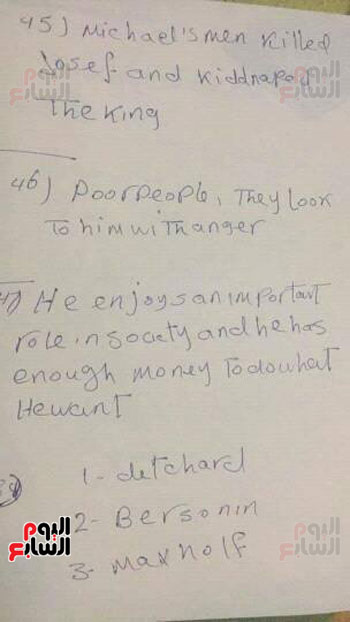 45) Michael's men killed
Josef and kiddnaped
The King
46) Poor people, They look
To him with anger
47) He enjoys an important
role in society and he has
enough money To do what
He want
1- detchard
2- Bersonin
3- Max holf
اليوم السابع
اليوم السابع
اليوم السابع
اليوم السابع